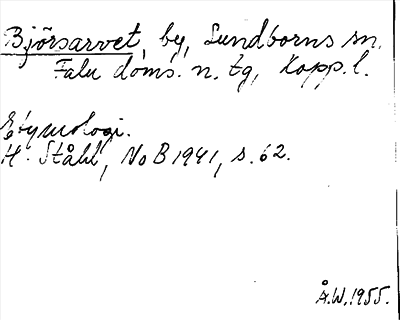 Björsarvet, by, Sundborns sn.
Falu doms. n. tg, Kopp. l.
Etymologi.
H. Ståhl, NoB 1941, s. 62.
Å.W. 1955.